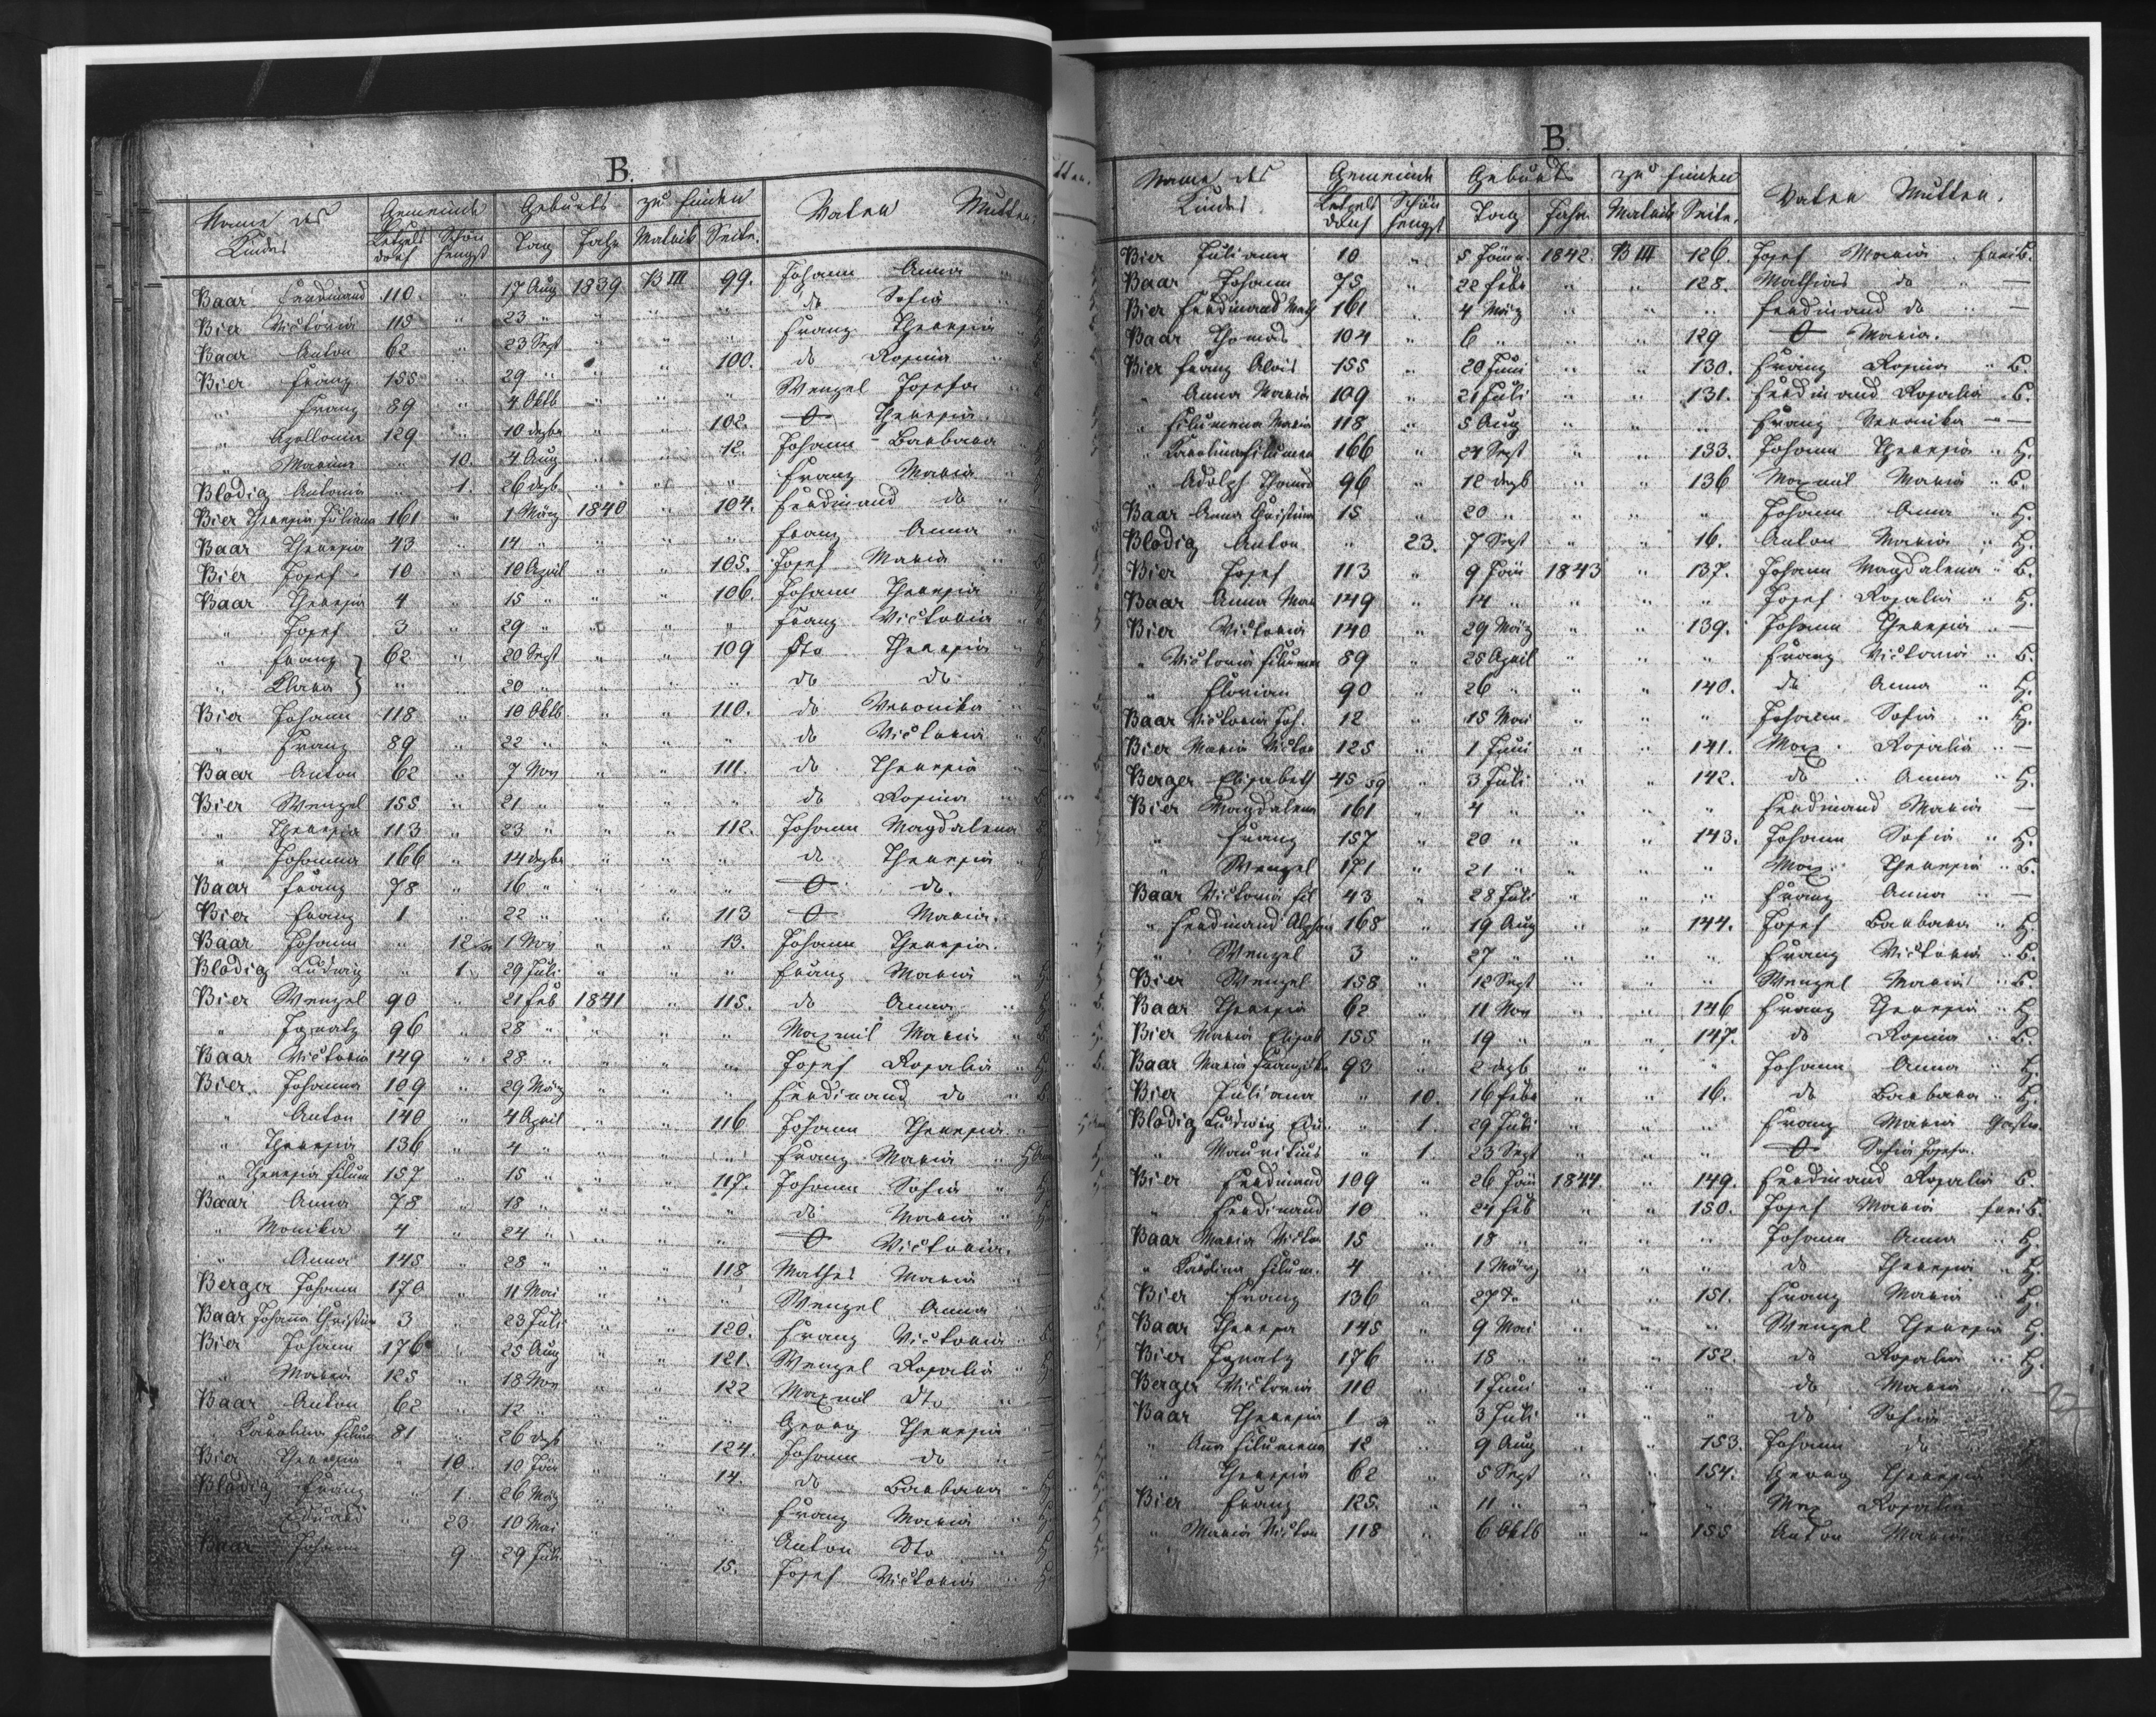 B.
Name des Kindes Gemeinde Geburts zu finden Vater Mutter.
Ketzelsdorf Schönhengst Tag Jahr Matrik Seite.
Baar Ferdinand 110 " 17 Aug 1839 B III 99. Johann Anna "
Bier Victoria 115 " 23 " " " " do Sofia "
Baar Anton 62 " 23 Sept " " " Franz Theresia "
Bier Franz 155 " 29 " " " 100. do Rosina "
" Franz 89 " 4 Oktb " " " Wenzel Josefa "
" Apollonia 129 " 10 dezbr " " 102. O Theresia.
" Marina " 10. 4 Aug " " 12. Johann Barbara "
Blodig Antonia " 1. 26 dezb " " " Franz Maria "
Bier Theresia Juliana 161 " 1 März 1840 " 104. Ferdinand do "
Baar Theresia 43 " 14 " " " " Franz Anna "
Bier Josef 10 " 10 April " " 105. Josef Maria "
Baar Theresia 4 " 15 " " " 106. Johann Theresia "
" Josef 3 " 29 " " " " Franz Victoria "
" Franz } 62 " 20 Sept " " 109 Dto Theresia "
" Klara } " " 20 " " " " do do "
Bier Johann 118 " 10 Oktb " " 110. do Veronika "
" Franz 89 " 22 " " " " do Victoria "
Baar Anton 62 " 7 Nov " " 111. do Theresia "
Bier Wenzel 155 " 21 " " " " do Rosina "
" Theresia 113 " 23 " " " 112. Johann Magdalena
" Johanna 166 " 14 dezbr " " " do Theresia "
Baar Franz 78 " 16 " " " " O do.
Bier Franz 1 " 22 " " " 113 O Maria.
Baar Johann " 12 1 Nov " " 13. Johann Theresia.
Blodig Ludwig " 1. 29 Juli " " " Franz Maria "
Bier Wenzel 90 " 21 Feb 1841 " 115. do Anna "
" Ignatz 96 " 28 " " " " Maxmil Maria "
Baar Victoria 149 " 28 " " " " Josef Rosalia "
Bier Johanna 109 " 29 März " " " Ferdinand do "
" Anton 140 " 4 April " " 116 Johann Theresia "
" Theresia 136 " 4 " " " " Franz Maria "
" Theresia Filum 157 " 15 " " " 117. Johann Sofia "
Baar Anna 78 " 18 " " " " do Maria "
" Monika 4 " 24 " " " " O Victoria.
" Anna 145 " 28 " " " 118 Mathes Maria
Berger Johann 170 " 11 Mai " " " Wenzel Anna
Baar Johana Christina 3 " 23 Juli " " 120. Franz Victoria "
Bier Johann 176 " 25 Aug " " 121. Wenzel Rosalia "
" Maria 125 " 18 Nov " " 122 Maxmil Dto "
Baar Anton 62 " 12 " " " " Georg Theresia "
" Karolina Filum 81 " 26 dezb " " 124. Johann do "
Bier Theresia " 10. 10 Jän " " 14. do Barbara "
Blodig Franz " 1. 26 März " " " Franz Maria "
" Eduard " 23 10 Mai " " " Anton Dto "
Baar Johann 9 29 Juli " " 15. Josef Victoria "
B.
Name des Kindes Gemeinde Geburts zu finden Vater Mutter.
Ketzelsdorf Schönhengst Tag Jahr Matrik Seite.
Bier Juliana 10 " 5 Jänn. 1842 B III 126. Josef Maria
Baar Johann 75 " 22 Febr " " 128. Mathias do " —
Bier Ferdinand Math 161 " 4 März " " " Ferdinand do " —
Baar Thomas 104 " 6 " " " 129 O Maria.
Bier Franz Alois 155 " 20 Juni " " 130. Franz Rosina " B.
" Anna Maria 109 " 21 Juli " " 131. Ferdinand Rosalia " B.
" Filumena Maria 118 " 5 Aug " " " Franz Veronika —
" Karolina Filumena 166 " 24 Sept " " 133. Johann Theresia " H.
" Adolf Thomas 96 " 12 dezb " " 136 Maxmil Maria " B.
Baar Anna Christina 15 " 20 " " " " Johann Anna " H.
Blodig Anton " 23. 7 Sept " " 16. Anton Maria " H.
Bier Josef 113 " 9 Jän 1843 " 137. Johann Magdalena " B.
Baar Anna Mar 149 " 14 " " " " Josef Rosalia " H.
Bier Victoria 140 " 29 März " " 139. Johann Theresia " —
" Victoria Filumena 89 " 25 April " " " Franz Victoria " B.
" Florian 90 " 26 " " " 140. do Anna " H.
Baar Victoria Joh. 12 " 15 Mai " " " Johann Sofia " H.
Bier Maria Victor 125 " 1 Juni " " 141. Max. Rosalia " —
Berger Elisabeth 45 59 " 3 Juli " " 142. do Anna " H.
Bier Magdalena 161 " 4 " " " " Ferdinand Maria —
" Franz 157 " 20 " " " 143. Johann Sofia " H.
" Wenzel 171 " 21 " " " " Max. Theresia " B.
Baar Victoria Fil 43 " 28 Juli " " " Franz Anna " —
" Ferdinand Alfons 168 " 19 Aug " " 144. Josef Barbara " H.
" Wenzel 3 " 27 " " " " Franz Victoria " B.
Bier Wenzel 158 " 12 Sept " " " Wenzel Maria " B.
Baar Theresia 62 " 11 Nov " " 146 Franz Theresia " H
Bier Maria Elisab 155 " 19 " " " 147. do Rosina " B.
Baar Maria Franziska 93 " 2 dezb " " " Johann Anna " H.
Bier Juliana " 10. 16 Febr " " 16. do Barbara " H.
Blodig Ludwig Edu. " 1. 29 Juli " " " Franz Maria
" Mauritius " 1. 23 Sept " " " O Sofia Josefa.
Bier Ferdinand 109 " 26 Jän 1844. " 149. Ferdinand Rosalia B.
" Ferdinand 10 " 24 Feb " " 150. Josef Maria
Baar Maria Victor 15 " 18 " " " " Johann Anna " H.
" Karolina Filum. 4 " 1 März " " " do Theresia " H.
Bier Franz 136 " 27 do " " 151. Franz Maria " H.
Baar Theresia 145 " 9 Mai " " " Wenzel Theresia H.
Bier Ignatz 176 " 18 " " " 152. do Rosalia " H.
Berger Victoria 110 " 1 Juni " " " do Maria "
Baar Theresia 1 " 3 Juli " " " do Sofia
" Ana Filumena 12 " 9 Aug " " 153. Johann do
" Theresia 62 " 5 Sept " " 154. Georg Theresia
Bier Franz 125. " 11 " " " " Max Rosalia
" Maria Victor 118 " 6 Oktb " " 155 Anton Maria